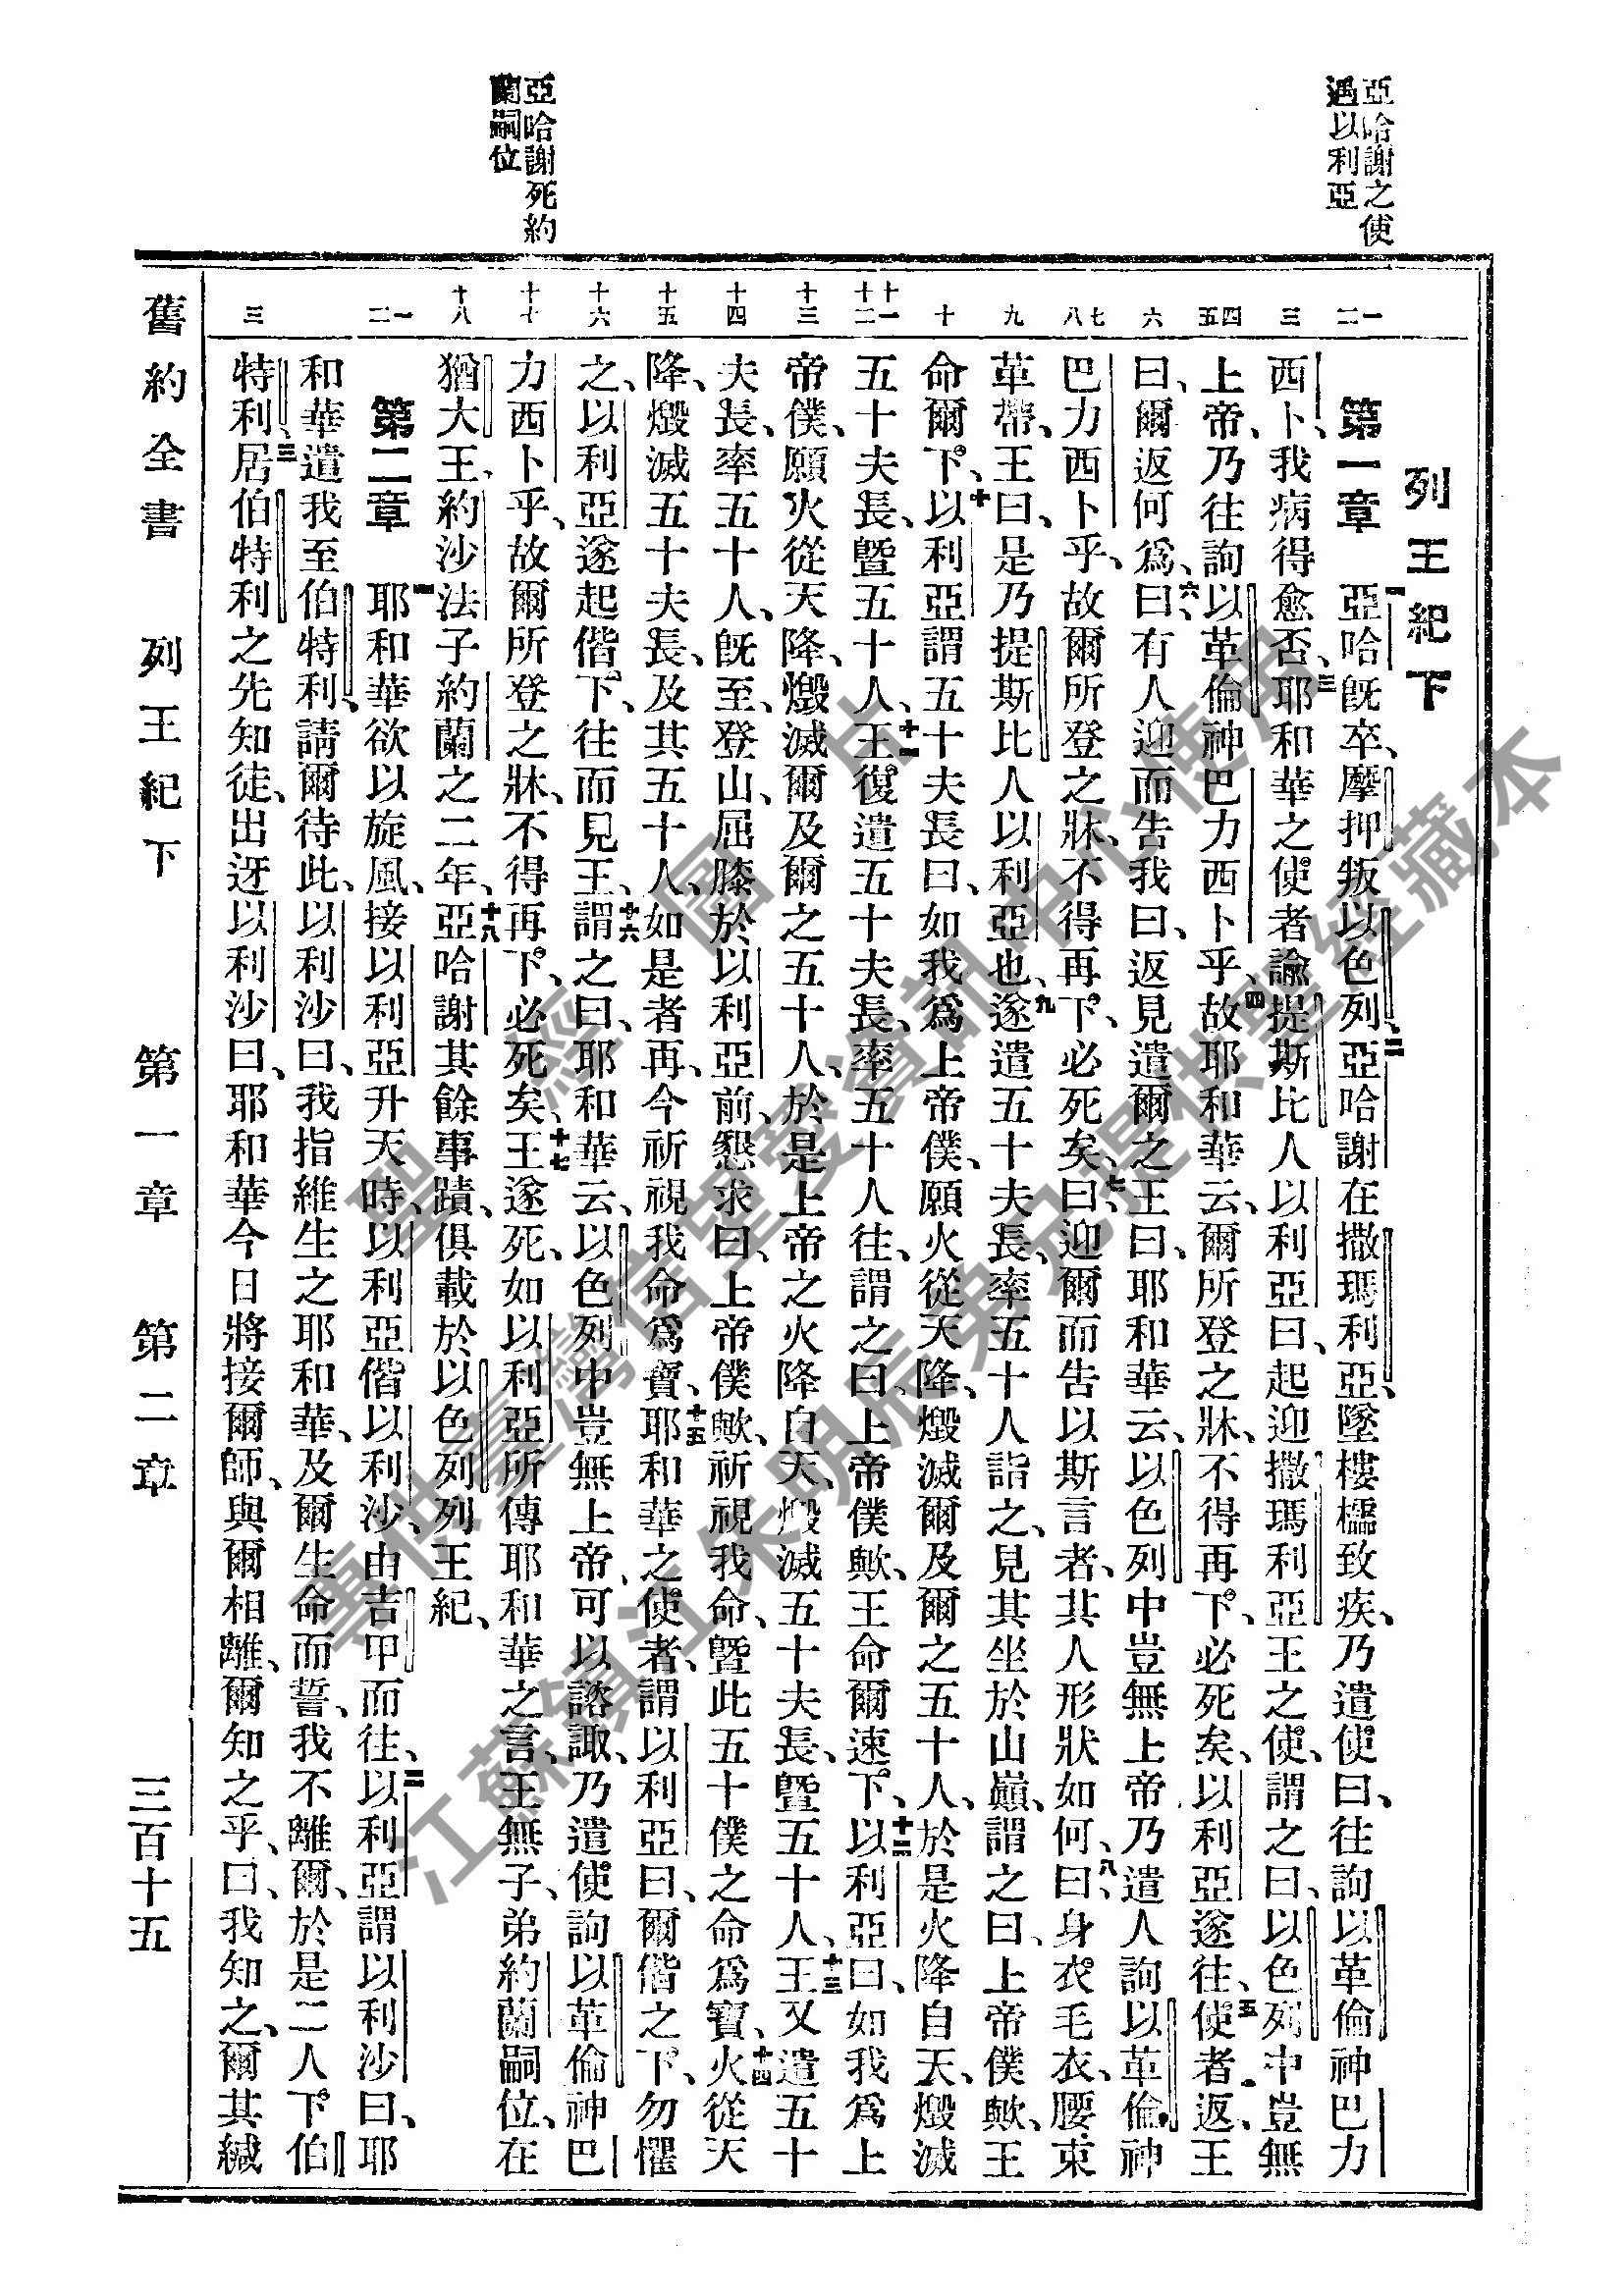 亞哈謝之使
遇以利亞
亞哈謝死約
蘭嗣位
列王紀下
一二
三
四五
六
七八
九
十
十一十二
十三
十四
十五
十六
十七
十八
一二
三
第一章 一亞哈旣卒、摩押叛以色列、二亞哈謝在撒瑪利亞、墜樓檽致疾、乃遣使曰、往詢以革倫神巴力
西卜、我病得愈否、三耶和華之使者諭提斯比人以利亞曰、起迎撒瑪利亞王之使、謂之曰、以色列中豈無
上帝、乃往詢以革倫神巴力西卜乎、四故耶和華云、爾所登之牀、不得再下、必死矣、以利亞遂往、五使者返、王
曰、爾返何爲、六曰、有人迎而告我曰、返見遣爾之王曰、耶和華云、以色列中豈無上帝、乃遣人詢以革倫神
巴力西卜乎、故爾所登之牀、不得再下、必死矣、七曰、迎爾而告以斯言者、其人形狀如何、八曰、身衣毛衣、腰束
革帶、王曰、是乃提斯比人以利亞也、九遂遣五十夫長、率五十人詣之、見其坐於山巔、謂之曰、上帝僕歟、王
命爾下、十以利亞謂五十夫長曰、如我爲上帝僕、願火從天降、燬滅爾及爾之五十人、於是火降自天、燬滅
五十夫長、曁五十人、十一王復遣五十夫長、率五十人往、謂之曰、上帝僕歟、王命爾速下、十二以利亞曰、如我爲上
帝僕、願火從天降、燬滅爾及爾之五十人、於是上帝之火降自天、燬滅五十夫長、曁五十人、十三王又遣五十
夫長、率五十人、旣至、登山、屈膝於以利亞前、懇求曰、上帝僕歟、祈視我命、曁此五十僕之命爲寶、十四火從天
降、燬滅五十夫長、及其五十人、如是者再、今祈視我命爲寶、十五耶和華之使者、謂以利亞曰、爾偕之下、勿懼
之、以利亞遂起偕下、往而見王、十六謂之曰、耶和華云、以色列中豈無上帝、可以諮諏、乃遣使詢以革倫神巴
力西卜乎、故爾所登之牀、不得再下、必死矣、十七王遂死、如以利亞所傳耶和華之言、王無子、弟約蘭嗣位、在
猶大王、約沙法子約蘭之二年、十八亞哈謝其餘事蹟、俱載於以色列列王紀、
第二章 一耶和華欲以旋風、接以利亞升天時、以利亞偕以利沙、由吉甲而往、二以利亞謂以利沙曰、耶
和華遣我至伯特利、請爾待此、以利沙曰、我指維生之耶和華、及爾生命而誓、我不離爾、於是二人下伯
特利、三居伯特利之先知徒、出迓以利沙曰、耶和華今日將接爾師、與爾相離、爾知之乎、曰、我知之、爾其緘
舊約全書 列王紀下 第一章 第二章 三百十五
聖經圖片
專供臺灣信望愛資訊中心使用
江蘇鎮江朱明辰弟兄提供聖經藏本